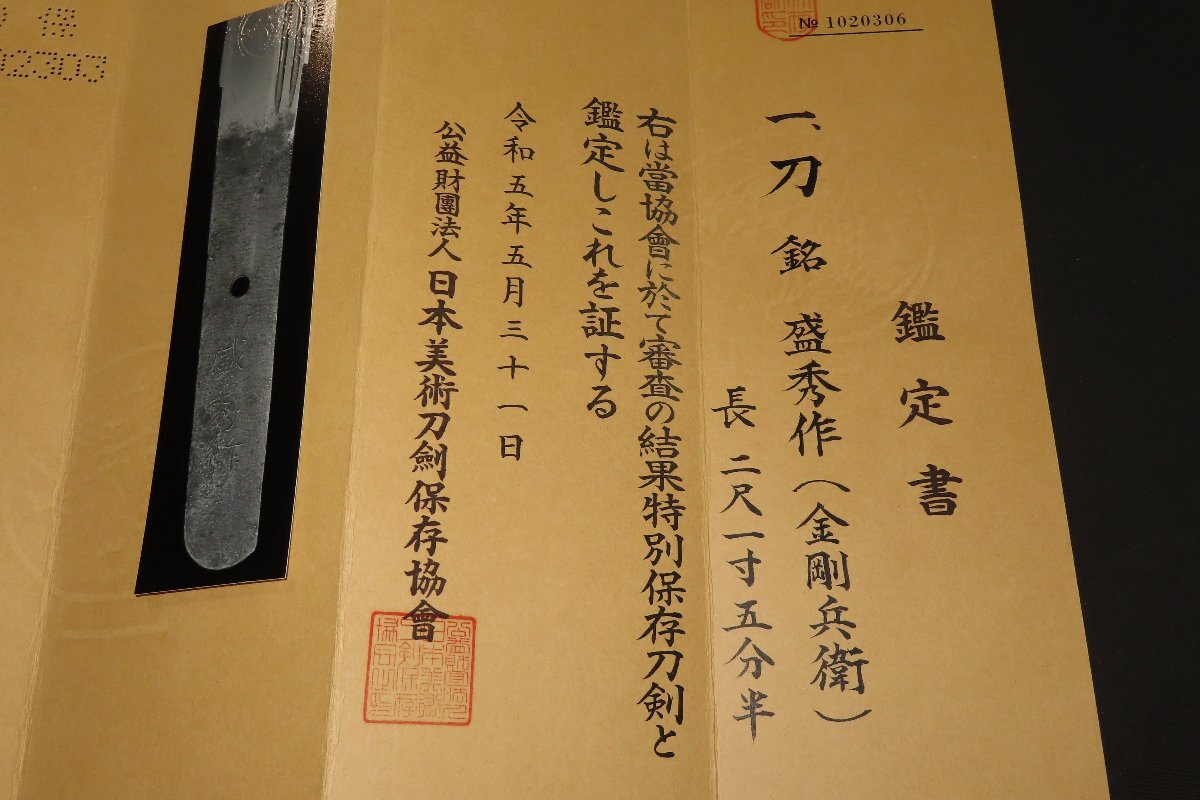 № 1020306
鑑定書
一、刀 銘 盛秀作(金剛兵衛)
長 二尺一寸五分半
右は當協會に於て審査の結果特別保存刀剣と
鑑定しこれを証する
令和五年五月三十一日
公益財團法人 日本美術刀劍保存協會
保
2303
盛秀作